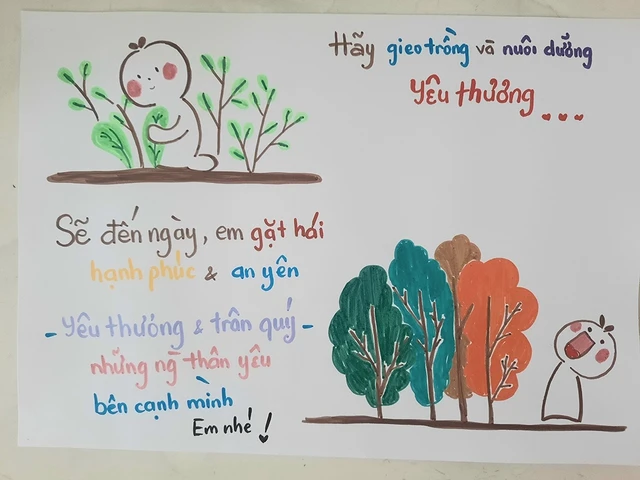 Hãy gieo trồng và nuôi dưỡng
Yêu thương...
Sẽ đến ngày, em gặt hái
hạnh phúc & an yên
- Yêu thương & trân quý -
những ng thân yêu
bên cạnh mình
Em nhé!